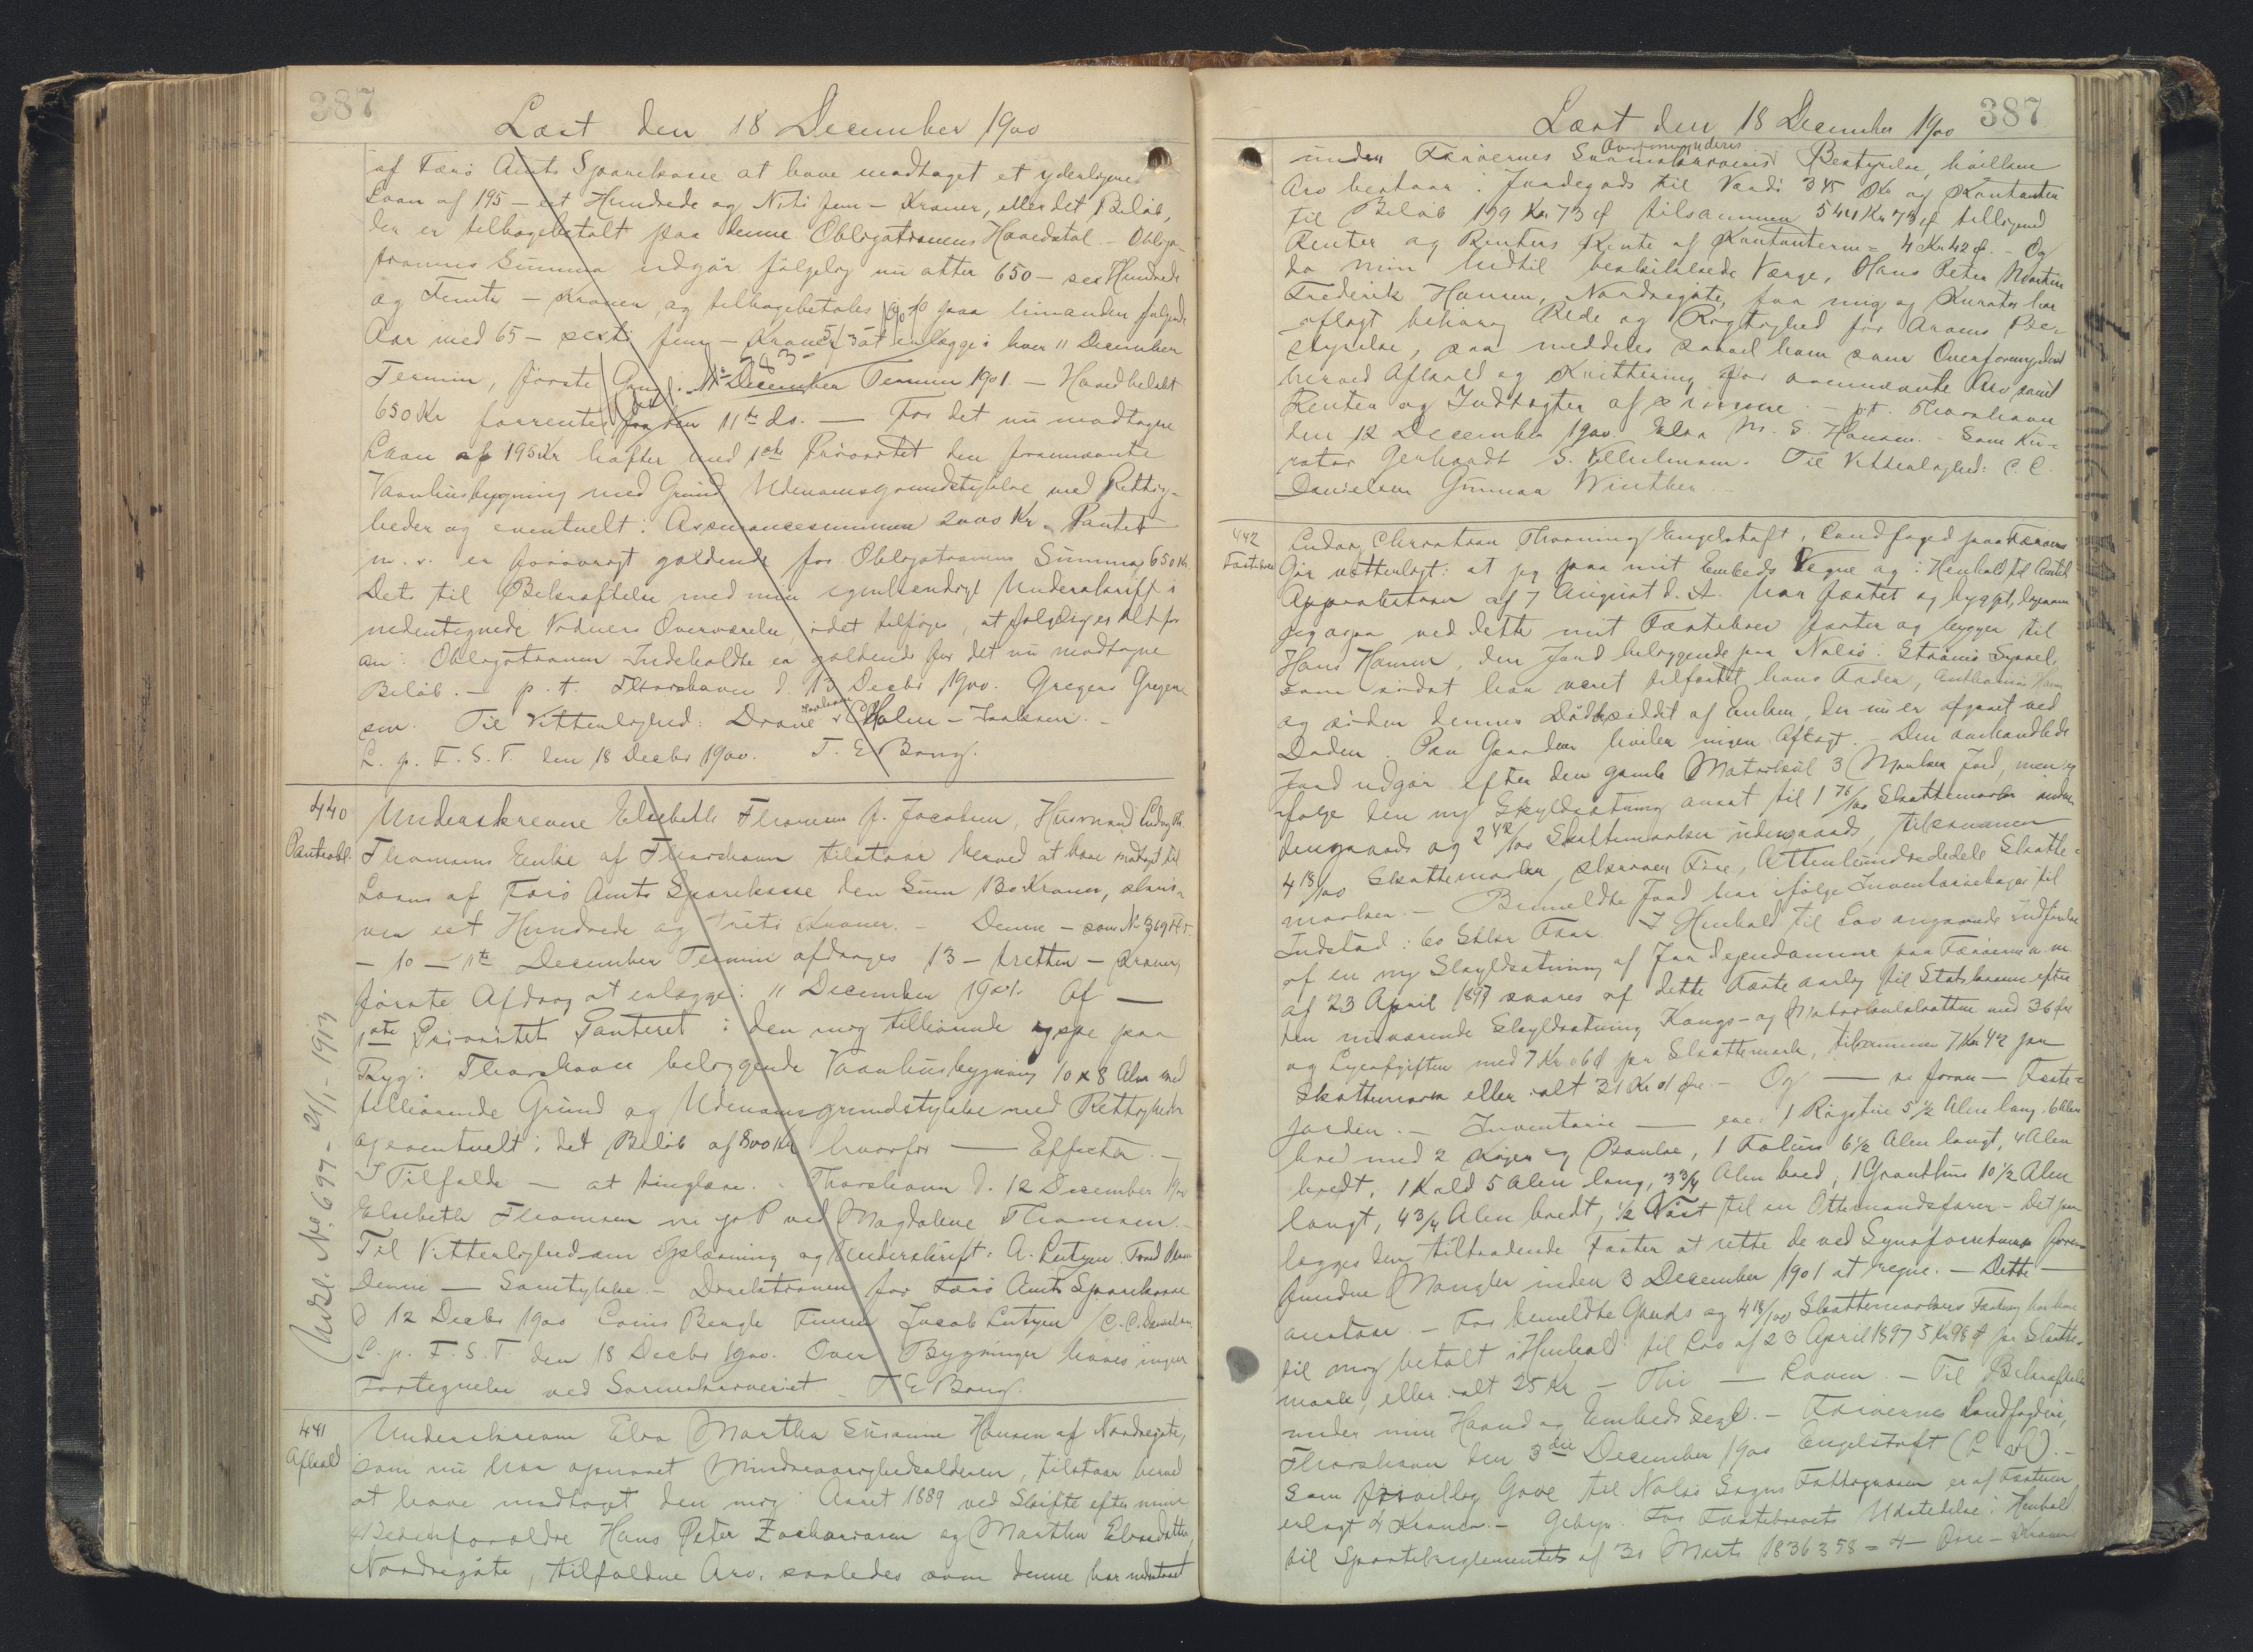 387
Læst den 18 December 1900
af Færø Amts Sparekasse at have modtaget et yderligere
Laan af 195 – eet Hundrede og Niti fem – Kroner, eller det Beløb,
der er tilbagebetalt paa denne Obligations Hovedstol. – Obliga-
tionens Summa udgør følgelig nu atter 650 – sex Hundrede
og Femti – Kroner, og tilbagebetales paa hinanden følgende
Aar med 65 – sexti fem – Kroner at erlægge i hver 11 December
Termin, første Gang i 11 December Termin 1901. – Hovedbeløbet
650 Kr forrentes fra den 11te ds. – For det nu modtagne
Laan af 195 Kr hæfter med 1ste Prioritet den fornævnte
Vaanhusbygning med Grund Udenomsgrundstykke med Rettig-
heder og eventuelt: Assurancesummen 2000 Kr. Pantet
m. v. er forøvrigt gældende for Obligationens Summa 650 Kr.
Dets til Bekræftelse med min egenhændige Underskrift i
nedentegnede Vidners Overværelse, idet tilføjes, at følgelig er Alt for
an i Obligationen Indeholdte er gældende for det nu modtagne
Beløb. – p. t. Thorshavn d. 13 Decbr 1900. Gregers Gregersen
sen. Til Vitterlighed: Holm – Isaksen. –
L. p. F. S. T. den 18 Decbr 1900. T. E. Bang.
440
Panteobl.
Underskrevne Elsebeth Thomsen f. Jacobsen, Husmand Ludvig Th.
Thomsens Enke af Thorshavn tilstaar herved at have modtaget til
Laans af Færø Amts Sparekasse den Sum 130 Kroner, skri-
ver eet Hundrede og Treti Kroner. – Denne – som No 369
– 10 – 11te December Termin afdrages 13 – tretten – Kroner,
første Afdrag at erlægge i 11 December 1901. Af –
1ste Prioritets Panteret i den mig tilhørende
Thorshavn beliggende Vaanhusbygning 10 x 8 Alen med
tilhørende Grund og Udenomsgrundstykke med Rettigheder
og eventuelt i det Beløb af 800 Kr hvorfor – Effecter. –
I Tilfælde – at tinglæse. – Thorshavn d. 12 December 1900
Elsebeth Thomsen m. f. P. ved Magdalene Thomsen. –
Til Vitterlighed om Oplæsning og Underskrift: A. Lützen.
Denne – Samtykke. – Direktionen for Færø Amts Sparekasse
d 12 Decbr 1900 Louis Bergh Finsen Jacob Lützen / C. C. Danielsen.
L. p. F. S. T. den 18 Decbr 1900. Over Bygninger haves ingen
Fortegnelse ved Sorenskriveriet. T. E. Bang.
Udsl. No 697 – 21/1 – 1913
441
Afkald
Underskrevne Elsa Martha Susanne Hansen af Nordregøte,
som nu har opnaaet Mindreaarighedsalderen, tilstaar herved
at have modtaget den mig i Aaret 1889 ved Skifte efter mine
Bedsteforældre Hans Peter Zachariasen og Martha Elsedatter,
Nordregøte, tilfaldne Arv, saaledes som denne har
387
Læst den 18 December 1900
under Færøernes Overformynderis Bestyrelse, hvilken
Arv bestaar i Jordegods til Værdi 345 Kr og Kontanter
til Beløb 199 Kr 73 Ø tilsammen 544 Kr 73 Ø tilligemed
Renter og Renters Rente af Kontanterne = 4 Kr 42 Ø. – Og
da min hidtil beskikkede Værge, Hans Peter Martin
Frederik Hansen, Nordregøte, for mig og Kurator har
aflagt behørig Rede og Rigtighed for Arvens Be-
styrelse, saa meddeles saavel ham som Overformynderiet
herved Afkald og Kvittering for ovennævnte Arv samt
Renter og Indtægter af samme. – p.t. Thorshavn
den 12 December 1900. Elsa M. S. Hansen. – Som Ku-
rator Gerhardt S. Vilhelmsen. Til Vitterlighed: C. C.
Danielsen Gunnar Winther
442
Fæstebrev
Ludvig Christian Thorning Engelstoft, Landfoged paa Færøerne
Gør vitterligt: at jeg paa mit Embeds Vegne og i Henhold til Amtets
Approbation af 7 August d. A. har fæstet og bygget, ligesom
jeg ogsaa ved dette mit Fæstebrev fæster og bygger til
Hans Hansen, den Jord beliggende paa Nolsø i Strømø Syssel,
som sidst har været tilfæstet hans Fader,
og siden dennes Død besiddet af Enken, der nu er afgaaet ved
Døden. Paa Gaarden hviler ingen Aftægt. – Den omhandlede
Jord udgør efter den gamle Matrikul 3 Marker Jord, men er
ifølge den ny Skyldsætning ansat til 1 76/100 Skattemarker inden-
dengaards og 2 42/100 Skattemarker udengaards, tilsammen
4 18/100 Skattemarker, skriver Fire, Attenhundrededele Skatte-
marker. – Bemeldte Jord har ifølge Inventariebogen til
Indstød: 60 Stkr Faar. I Henhold til Lov angaaende Indførelse
af en ny Skyldsætning af Jordejendomme paa Færøerne m. m.
af 23 April 1897 svares af dette Fæste aarlig til Statskassen efter
den nuværende Skyldsætning Kongs- og Matrikulskatten med 36 Øre
og Lejeafgiften med 7 Kr 06 Ø pr Skattemark, tilsammen 7 Kr 42 pr
Skattemark eller ialt 31 Kr 01 Øre. – Og – se foran – Fæste-
jorden. – Inventarie – ere: 1 Røgstue 5 1/2 Alen lang, 6 Alen
bred med 2 Køjer og Bænke, 1 Fæhus 6 1/2 Alen langt, 4 Alen
bredt, 1 Hjald 5 Alen lang, 3 3/4 Alen bred, 1 Grønthus 10 1/2 Alen
langt, 4 3/4 Alen bredt, 1/2 Nøst til en Ottemandsfarer. – Det paa
lægges den tiltrædende Fæster at rette de ved Synsforretningen fore-
fundne Mangler inden 3 December 1901 at regne. – Dette –
anstaar. – For bemeldte Gaards og 4 18/100 Skattemarkers Fæstning har han
til mig betalt i Henhold til Lov af 23 April 1897 5 Kr 98 Ø pr Skatte-
mark, eller ialt 25 Kr – Thi – Loven. – Til Bekræftelse
under min Haand og Embeds Segl. – Færøernes Landfogderi,
Thorshavn den 3die December 1900 Engelstoft (L. S.). –
Som frivillig Gave til Nolsø Sogns Fattigvæsen er af Fæsteren
erlagt 4 Kroner. – Gebyr for Fæstebrevets Udstedelse i Henhold
til Sportelreglementet af 30 Marts 1836 § 58 = 4 – fire – Kroner